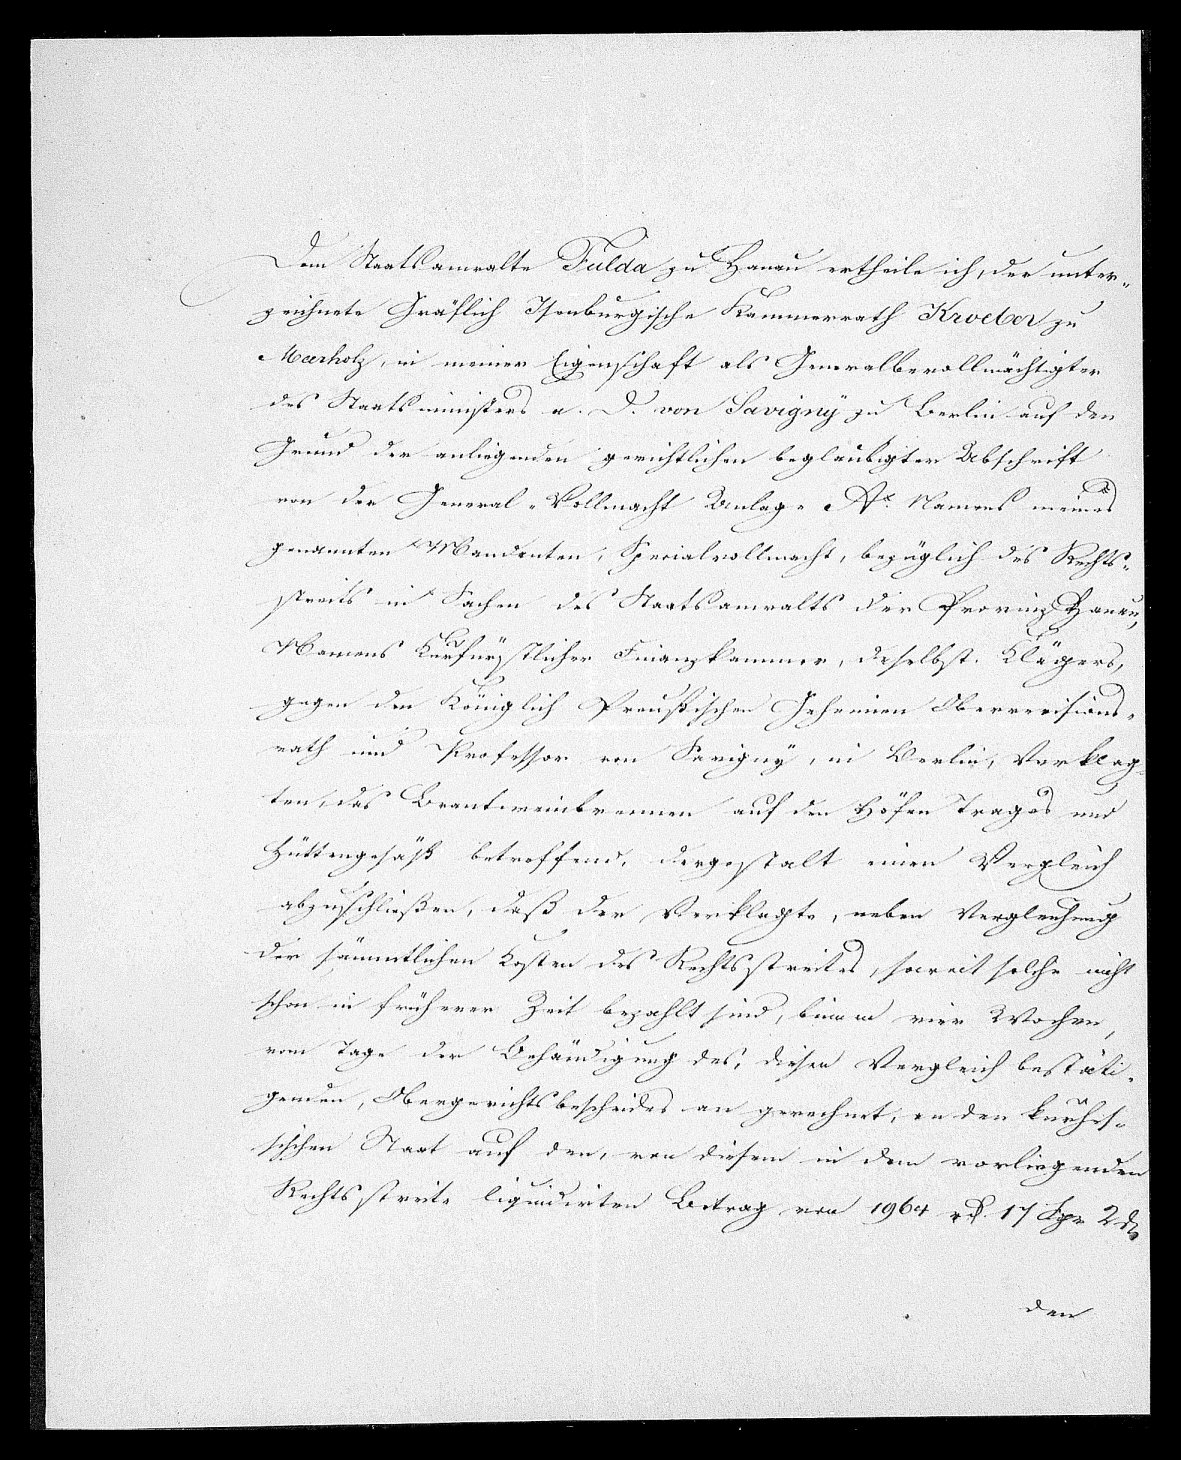 Dem Staatsanwalte Fulda zu Hanau ertheile ich, der unter-
zeichnete Gräflich Isenburgische Kammerrath Kroeber zu
Meerholz, in meiner Eigenschaft als Generalbevollmächtigter
des Staatsministers a. D. von Savigny zu Berlin auf den
Grund der anliegenden gerichtlichen beglaubigter Abschrift
von der General-Vollmacht Anlage A. Namens meines
genannten Mandanten, Specialvollmacht, bezüglich des Rechts-
streits in Sachen des Staatsanwalts der Provinz Hanau,
Namens Kurfürstlicher Finanzkammer, daselbst. Klägers,
gegen den Königlich Preußischen Geheimen Oberrevisions-
rath und Professor von Savigny, in Berlin, Verklag-
ten, das Brantweinbrennen auf den Höfen Trages und
Hüttengesäß betreffend, dergestalt einen Vergleich
abzuschließen, daß der Verklagte, neben Vergleichung
der sämmtlichen Kosten des Rechtsstreites, soweit solche nicht
schon in früherer Zeit bezahlt sind, binnen vier Wochen,
vom Tage der Behändigung des, diesen Vergleich bestäti-
genden, Obergerichtsbescheides an gerechnet, an den kurhes-
sischen Staat auf den, von diesem in dem vorliegenden
Rechtsstreite liquidirten Betrag von 1964 rt. 17 Sgr 2 d
den